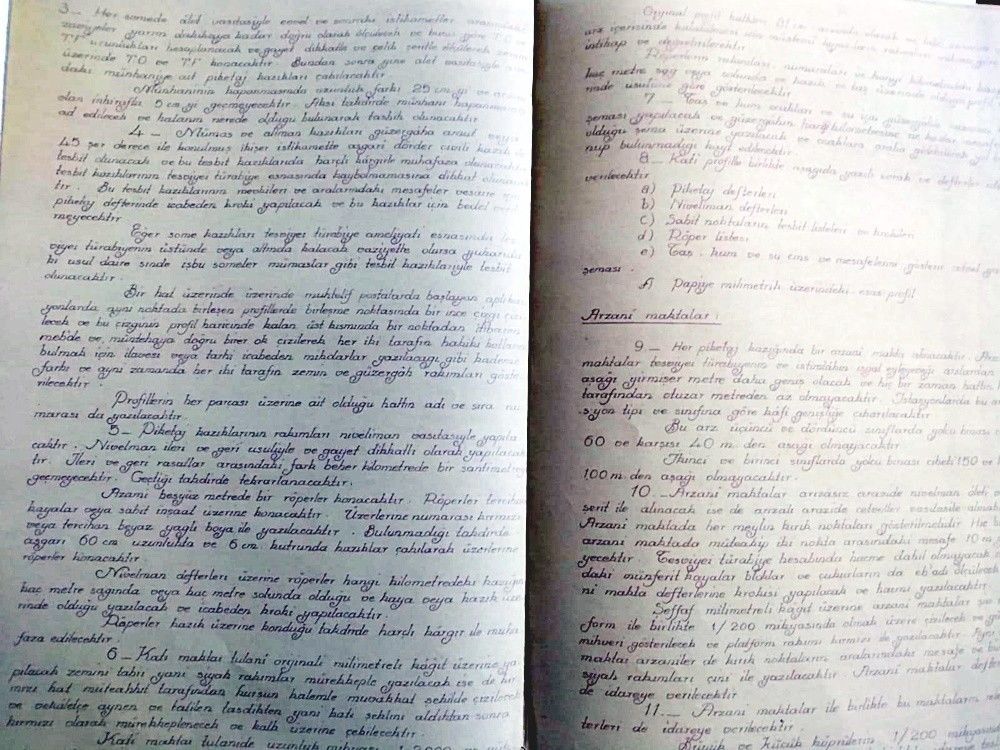 3 — Her somede âlet vasıtasiyle evvel ve sonraki istikametler arasındaki
zaviyeler yarım dakikaya kadar doğru olarak ölçülecek ve buna göre T.O ve
T.F uzunlukları hesaplanacak ve gayet dikkatle ve çelik şeritle ölçülerek zemin
üzerinde T.O ve T.F konacaktır. Bundan sonra yine âlet vasıtasiyle
daki münhaniye ait piketaj kazıkları çakılacaktır.
Münhaninin kapanmasında uzunluk farkı 25 cm.yi ve
olan inhirafla 5 cm yi geçmeyecektir. Aksi takdirde münhani kapanmamış
ad edilecek ve hatanın nerede olduğu bulunarak tashih olunacaktır.
4 — Mümas ve aliman kazıkları güzergâha amut veya
45 şer derece ile konulmuş ikişer istikamette asgari dörder civili kazık
tesbit olunacak ve bu tesbit kazıklarıda harçlı kârgirle muhafaza olunacak
tesbit kazıklarının tesviyei türabiye esnasında kaybolmamasına dikkat oluna
tır. Bu tesbit kazıklarının mevkileri ve aralarındaki mesafeler vesaire için
piketaj defterinde icabeden kroki yapılacak ve bu kazıklar için bedel veril
meyecektir
Eğer some kazıkları tesviyei türabiye ameliyatı esnasında tes
viyei türabiyenin üstünde veya altında kalacak vaziyette olursa yukarıda
ki usul daire sinde işbu someler mümaslar gibi tesbit kazıklariyle tesbit
olunacaktır.
Bir hat üzerinde üzerinde muhtelif postalarda başlayan aplikas
yonlarda aynı noktada birleşen profillerde birleşme noktasında bir ince çizgi çizi
lecek ve bu çizginin profil haricinde kalan üst kısmında bir noktadan itibaren
mebde ve müntehaya doğru birer ok çizilerek her iki tarafın hakiki hatların
bulmak için ilâvesi veya tarhi icabeden mikdarlar yazılacağı gibi kademe
farkı ve aynı zamanda her iki tarafın zemin ve güzergâh rakımları göste
rilecektir
Profillerin her parçası üzerine ait olduğu hattın adı ve sıra nu
marası da yazılacaktır.
5 — Piketaj kazıklarının rakımları niveliman vasıtasiyle yapıla
caktır. Nivelman ileri ve geri usuliyle ve gayet dikkatli olarak yapılacak
tır. İleri ve geri rasatlar arasındaki fark beher kilometrede bir santimetreyi
geçmeyecektir. Geçtiği takdirde tekrarlanacaktır.
Azami beşyüz metrede bir röperler konacaktır. Röperler tercihan
kayalar veya sabit inşaat üzerine konacaktır. Üzerlerine numarası kırmızı
veya tercihan beyaz yağlı boya ile yazılacaktır. Bulunmadığı takdirde
asgari 60 cm. uzunlukta ve 6 cm. kutrunda kazıklar çakılarak üzerlerine
röperler konacaktır
Nivelman defterleri üzerine röperler hangi kilometredeki kazığın
kaç metre sağında veya kaç metre solunda olduğu ve kaya veya kazık üze
rinde olduğu yazılacak ve icabeden kroki yapılacaktır
Röperler kazık üzerine konduğu takdirde harçlı kârgir ile muha
faza edilecektir.
6 — Kati maktai tulanî orijinali milimetreli kâğıt üzerine ya
pılacak zemini tabiî yani siyah rakımlar mürekkeple yazılacak ise de kır
mızı hat müteahhit tarafından kurşun kalemle muvakkat şekilde çizilecek
ve vekâletçe aynen ve tadilen tasdikten yani kati şeklini aldıktan sonra
kırmızı olarak mürekkeplenecek ve kalb üzerine çekilecektir.
Kati maktai tulanide uzunluk mikyası 1/2000
Orijinal profil
arz içerisinde
intihap ve
Röperlerin rakımları, numaraları ve hangi kilometredeki
kaç metre sağ veya solunda ve kazık ve taş üzerinde olduğu profil
rinde usulüne göre gösterilecektir
7 — Taş ve kum ocakları ve su için güzergâh
şeması yapılacak ve güzergâhın hangi kilometresine ne kadar mesafe
olduğu şema üzerine yazılacak ve ocaklara araba
nup bulunmadığı kayıt edilecektir.
8 — Kati profille birlikte aşağıda yazılı evrak ve defterler
verilecektir
a) Piketaj defterleri
b) Niveliman defterleri
c) Sabit noktaların tesbit listeleri ve krokileri
d) Röper listesi
e) Taş, kum ve su cins ve mesafelerini gösterir
şeması.
f) Papiye milimetrik üzerindeki esas profil
Arzanî maktalar:
9 — Her piketaj kazığında bir arzanî makta alınacaktır. Arzanî
maktalar tesviyei türabiyenin ve istimlâkin işgal eyleyeceği arzlardan
aşağı yirmişer metre daha geniş olacak ve hiç bir zaman hattın
tarafından otuzar metreden az olmayacaktır. İstasyonlarda bu
s yon tipi ve sınıfına göre kâfi genişliğe çıkarılacaktır
Bu arz üçüncü ve dördüncü sınıflarda yolcu binası
60 ve karşısı 40 m. den aşağı olmayacaktır
İkinci ve birinci sınıflarda yolcu binası ciheti 150 ve
100 m. den aşağı olmayacaktır.
10. — Arzanî maktalar arızasız arazide nivelman âleti
şerit ile alınacak ise de arızalı arazide cetveller vasıtasile alınab
Arzanî maktada her meylin kırık noktaları gösterilmelidir Hiç bir
arzanî maktada müteakip iki nokta arasındaki mesafe 10 m.
yecektir. Tesviyei türabiye hesabında hacme dahil olmayacak
daki münferit kayalar bloklar ve çukurların da eb'adı ölçülecek
ni makta defterlerine krokisi yapılacak ve hacmi yazılacaktır
Şeffaf milimetreli kâğıt üzerine arzanî maktalar
form ile birlikte 1/200 mikyasında olmak üzere çizilecek ve
mihveri gösterilecek ve platform rakımı kırmızı ile yazılacaktır. Ayni
maktaı arzaniler de kırık noktaların aralarındaki mesafe ve bu
siyah rakımları çini ile yazılacaktır. Arzanî maktalar defter
de idareye verilecektir
11. — Arzanî maktalar ile birlikte bu maktaların
terleri de idareye verilecektir.
Büyük ve küçük köprülerin 1/200 mikyasında